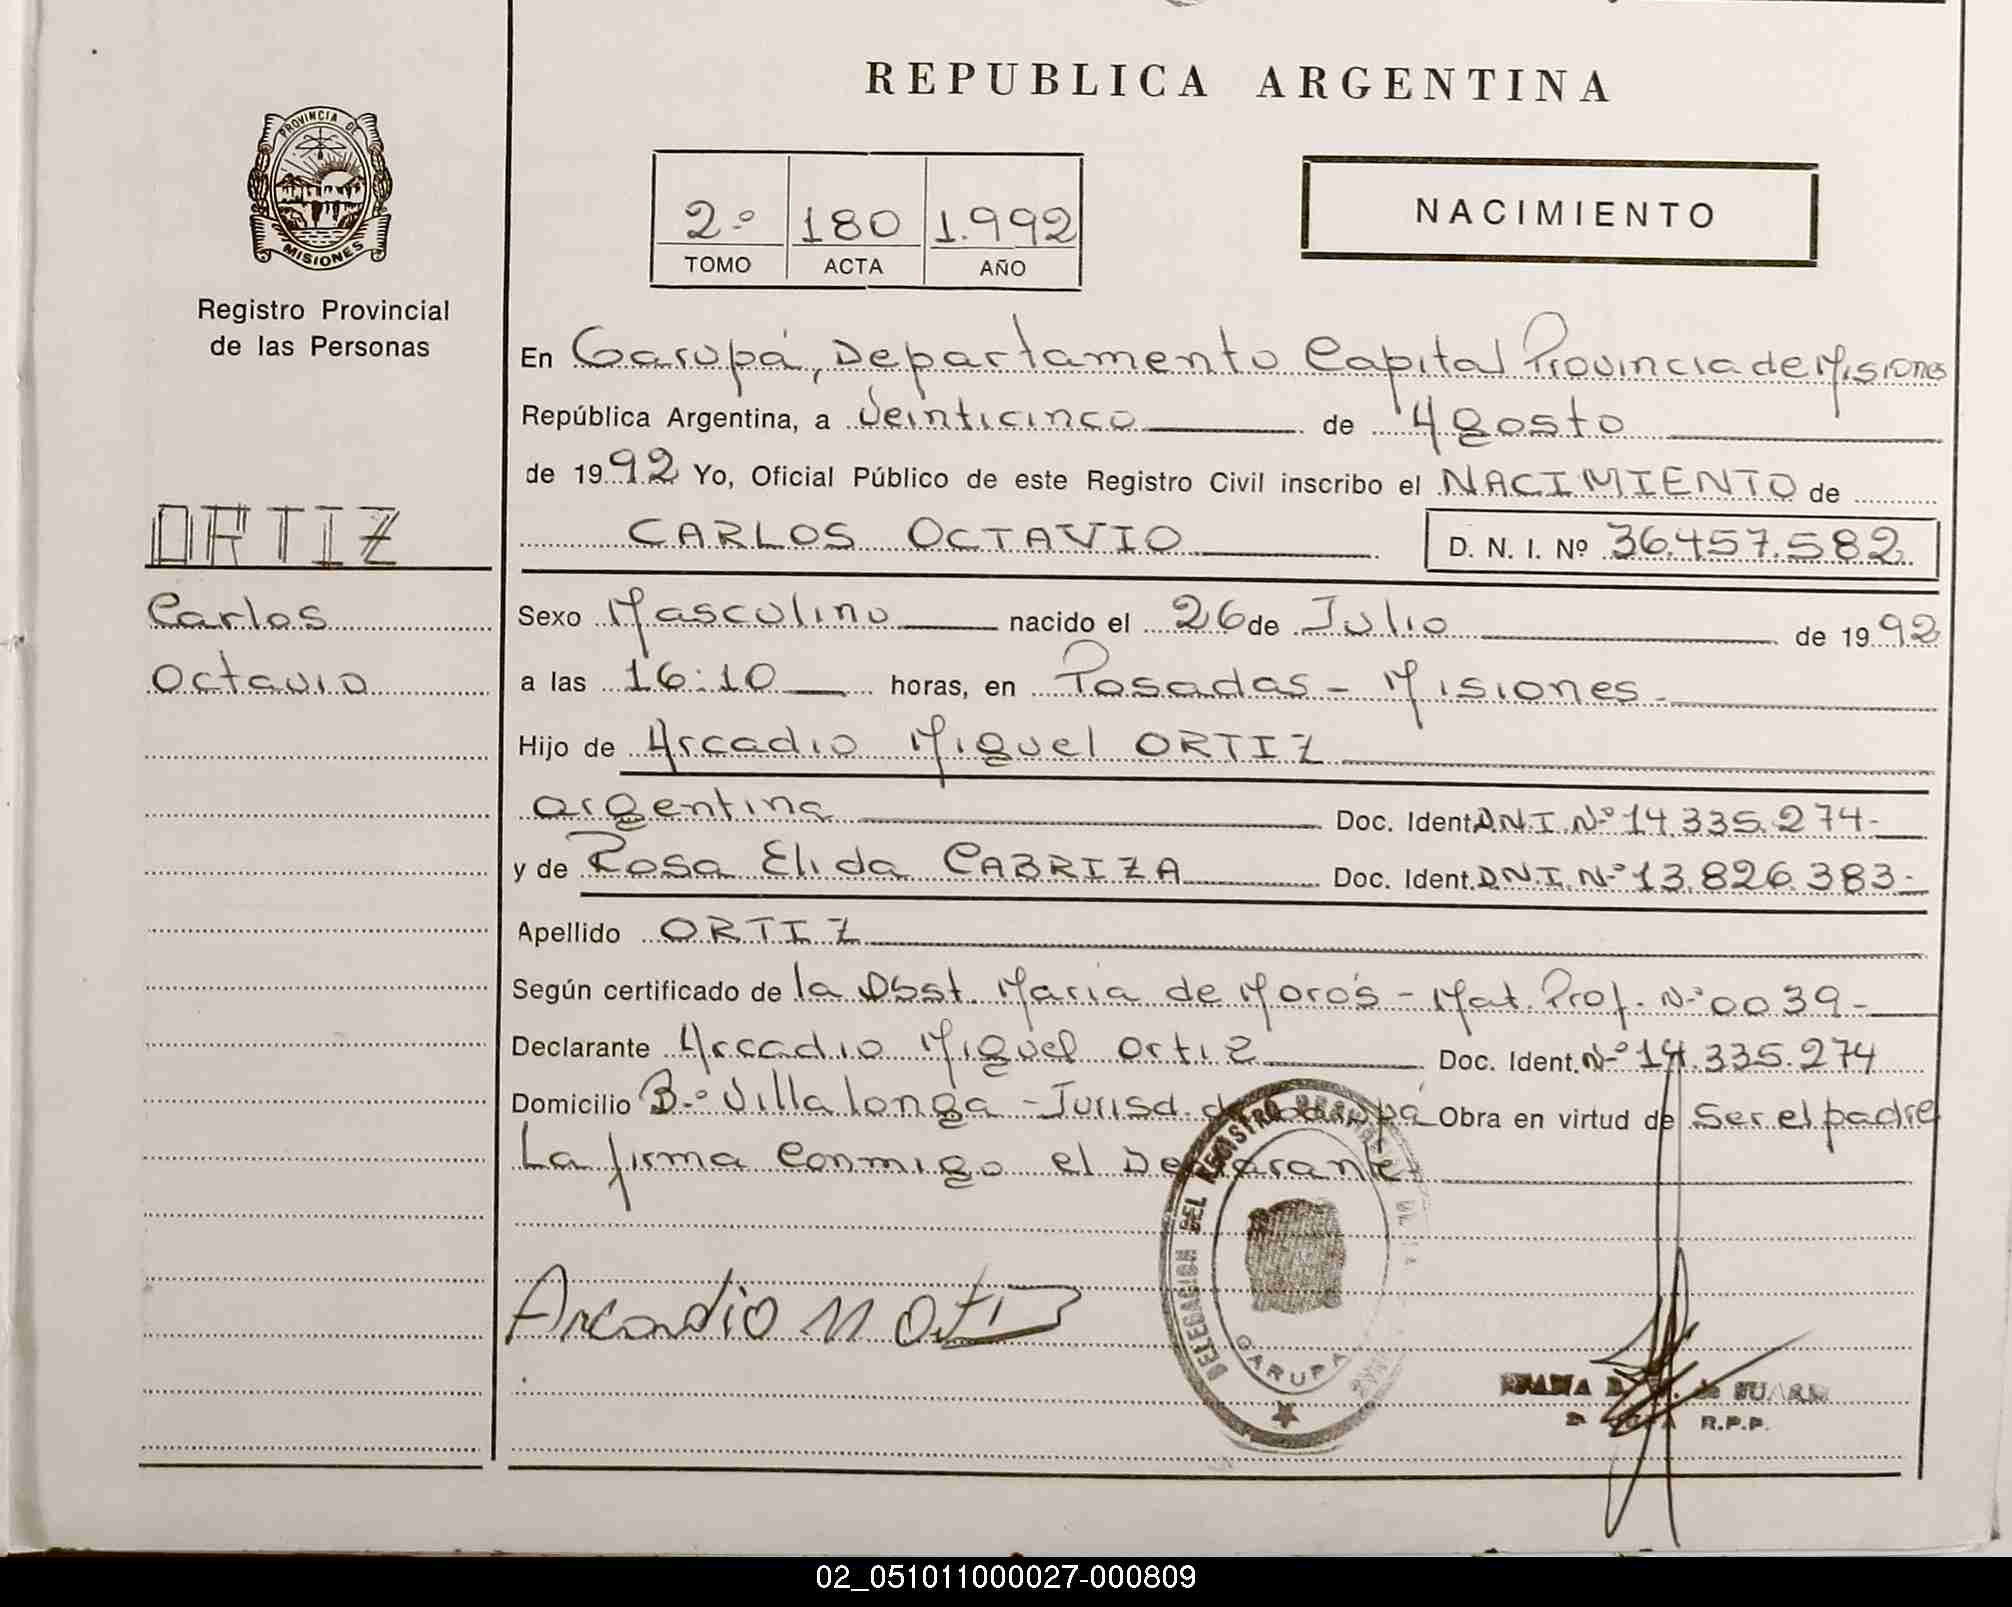 REPUBLICA ARGENTINA
PROVINCIA DE
MISIONES
Registro Provincial
de las Personas
2.º 180 1.992
TOMO ACTA AÑO
NACIMIENTO
En Garupá, Departamento Capital Provincia de Misiones
República Argentina, a Veinticinco de Agosto
de 1992 Yo, Oficial Público de este Registro Civil inscribo el NACIMIENTO de
CARLOS OCTAVIO D. N. I. Nº 36.457.582
ORTIZ
Carlos
Octavio
Sexo Masculino nacido el 26 de Julio de 1992
a las 16:10 horas, en Posadas - Misiones-
Hijo de Arcadio Miguel ORTIZ
argentina Doc. Ident. D.N.I. Nº 14.335.274-
y de Rosa Elida CABRIZA Doc. Ident. D.N.I. Nº 13.826.383-
Apellido ORTIZ
Según certificado de la Obst. Maria de Moros - Mat. Prof. Nº 0039-
Declarante Arcadio Miguel Ortiz Doc. Ident. Nº 14.335.274
Domicilio B.º Villa longa - Jurisd. de Garupá Obra en virtud de Ser el padre
La firma Conmigo el Declarante
Arcadio M Ortiz
DELEGACION DEL REGISTRO
GARUPA
de
R.P.P.
02_051011000027-000809